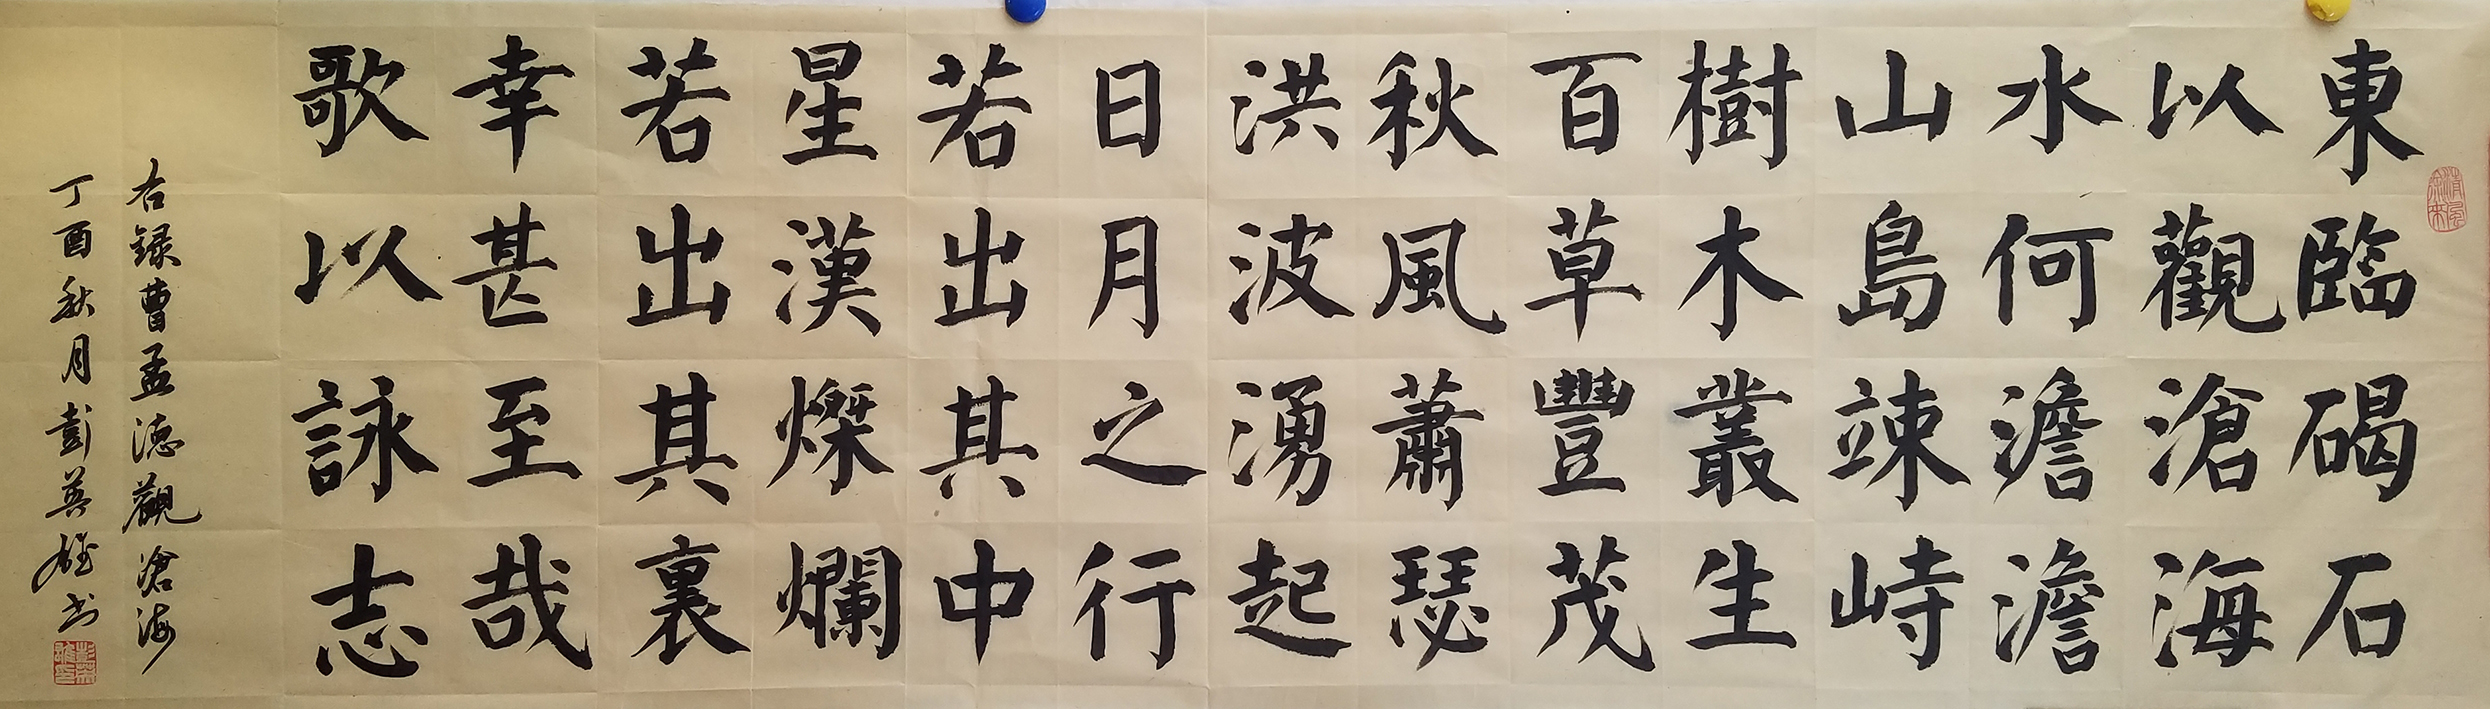 東臨碣石
以觀滄海
水何澹澹
山島竦峙
樹木叢生
百草豐茂
秋風蕭瑟
洪波湧起
日月之行
若出其中
星漢燦爛
若出其裏
幸甚至哉
歌以詠志
右録曹孟德觀滄海
丁酉秋月彭英雄书